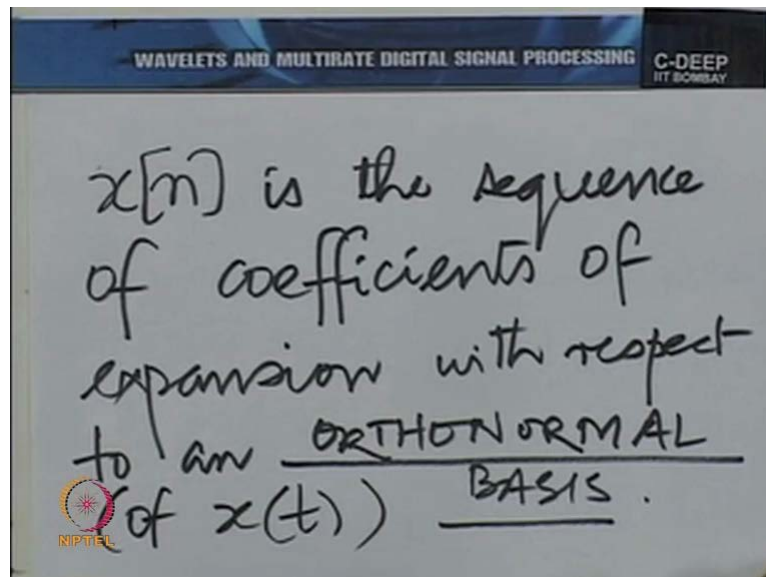 WAVELETS AND MULTIRATE DIGITAL SIGNAL PROCESSING
C-DEEP
IIT BOMBAY
x[n] is the sequence
of coefficients of
expansion with respect
to an ORTHONORMAL
(of x(t)) BASIS.
NPTEL